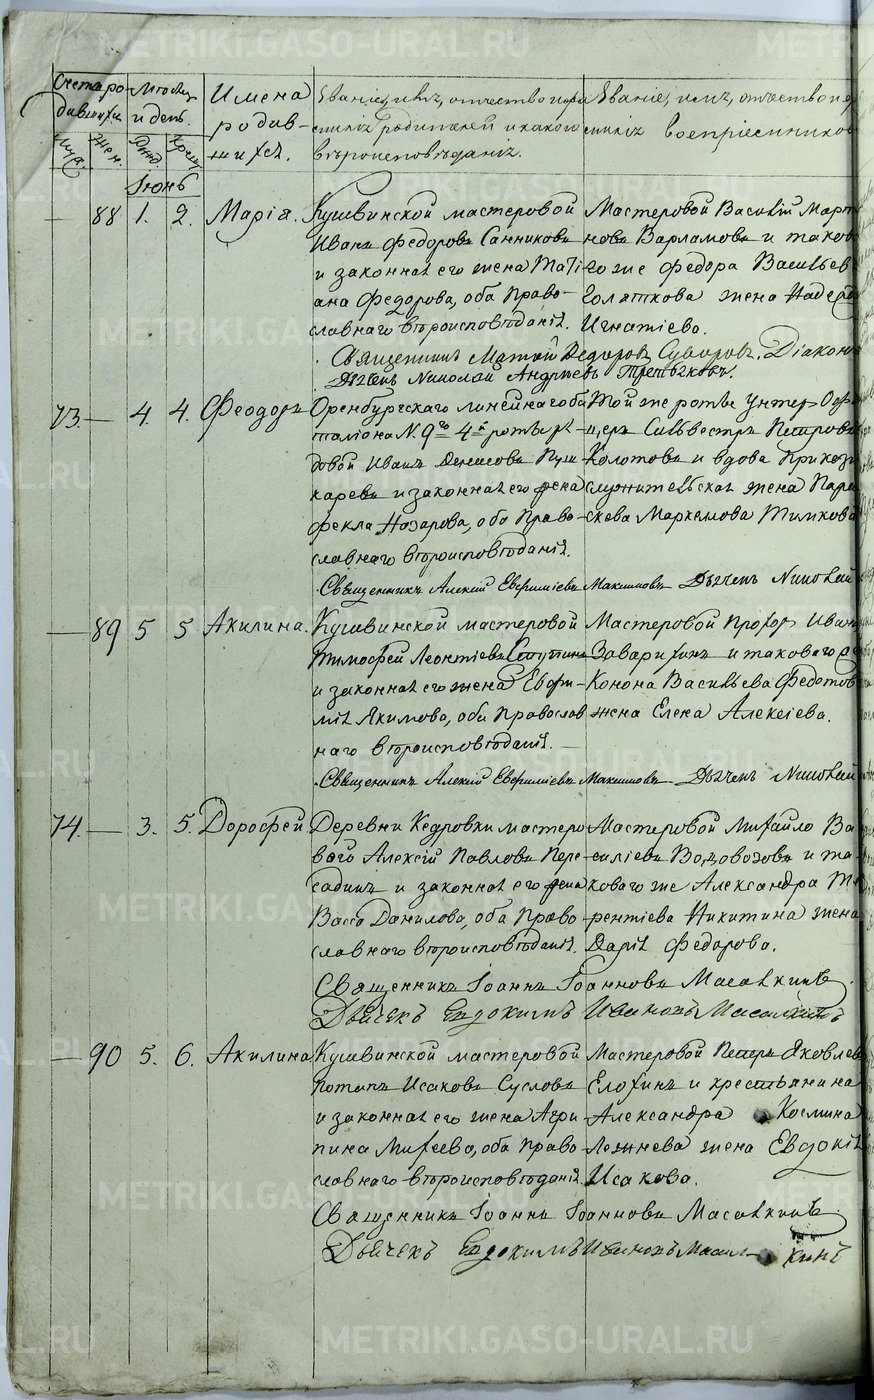 METRIKI.GASO-URAL.RU
Счетъ ро
дившихся
муж. жен.
Мѣсяцъ
и день.
рожд. крещ.
Имена
родив-
шихся.
Званіе, имя, отчество и фа
милія родителей и какого
вѣроисповѣданія.
Званіе, имя, отчество и фа
милія воспріемниковъ
Іюнь
— 88 1. 2. Марія.
Кушвинской мастеровой
Иванъ Федоровъ Санниковъ
и законная его жена Тати
ана Федорова, оба право-
славнаго вѣроисповѣданія.
Мастеровой Василій Март
новъ Варламовъ и таково
го же Федора Васильев
Голяткова жена Надежд
Игнатіева.
Священникъ Матѳій Ѳедоровъ Суворовъ. Діаконъ
Дьячекъ Николай Андреевъ Третьяковъ.
73. — 4. 4. Феодоръ
Оренбургскаго линейнаго ба
таліона №. 9го 4й роты ря-
довой Иванъ Денисовъ Пуш
каревъ и законная его жена
Фекла Назарова, оба право-
славнаго вѣроисповѣданія.
Той же роты унтеръ Оф
ицеръ Сильвестръ Петровъ
Колотовъ и вдова Приказн
служительская жена Пара
скева Мархелова Тимкова
Священникъ Алексій Евфиміевъ Максимовъ Дьячекъ Николай
— 89 5 5 Акилина.
Кушвинской мастеровой
Тимофей Леонтіевъ Ступинъ
и законная его жена Евфи-
мія Якимова, оба православ
наго вѣроисповѣданія. —
Мастеровой Прохоръ Иван
Заварихинъ и таковаго же
Конона Васильева Федотов
жена Елена Алексіева.
Священникъ Алексій Евфиміевъ Максимовъ Дьячекъ Николай
74. — 3. 5. Дорофей
Деревни Кедровки мастеро
вой Алексій Павловъ Пере
садинъ и законная его жена
Васса Данилова, оба право
славнаго вѣроисповѣданія.
Мастеровой Михайло Ва
силіевъ Водовозовъ и та-
коваго же Александра Те
рентіева Никитина жена
Дарія Федорова.
Священникъ Іоаннъ Іоанновъ Масалкинъ
Дьячекъ Евдокимъ Ивановъ Масалкинъ
— 90 5. 6. Акилина
Кушвинской мастеровой
Потапъ Исаковъ Сусловъ
и законная его жена Агри
пина Михеева, оба право
славнаго вѣроисповѣданія.
Мастеровой Петръ Яковлев
Елохинъ и крестьянина
Александра Космина
Лежнева жена Евдокія
Исакова.
Священникъ Іоаннъ Іоанновъ Масалкинъ
Дьячекъ Евдокимъ Ивановъ Масал кинъ